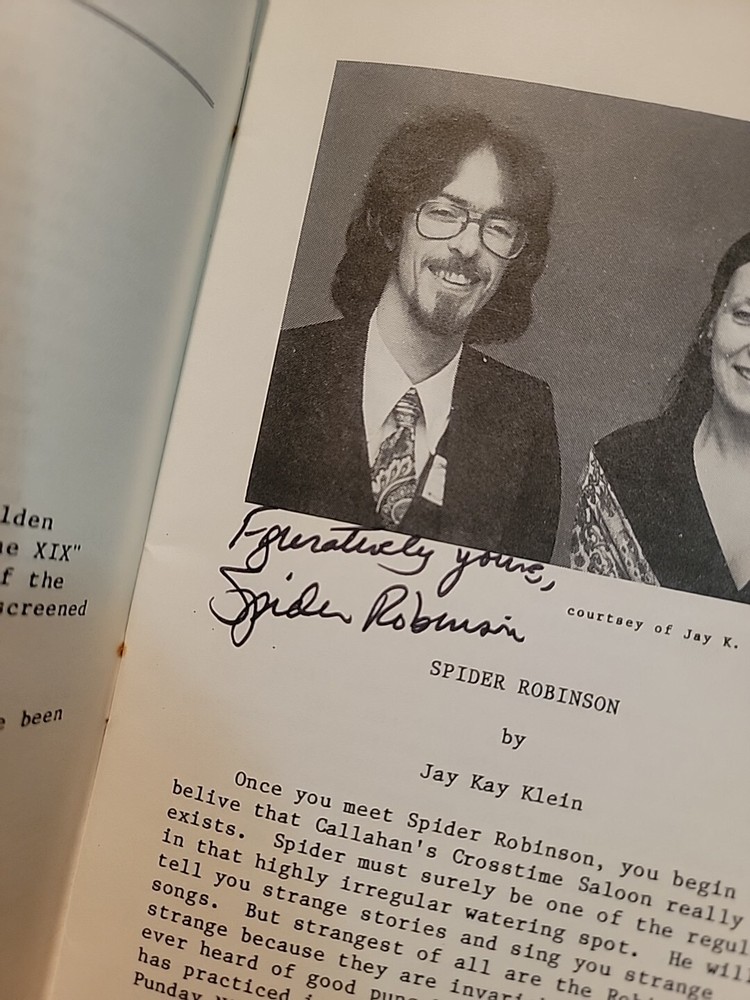 lden
e XIX"
f the
screened
e been
Figuratively yours,
Spider Robinson
courtsey of Jay K.
SPIDER ROBINSON
by
Jay Kay Klein
Once you meet Spider Robinson, you begin
belive that Callahan's Crosstime Saloon really
exists. Spider must surely be one of the regul
in that highly irregular watering spot. He will
tell you strange stories and sing you strange
songs. But strangest of all are the Rob
strange because they are invari
ever heard of good puns
has practiced i
Punday